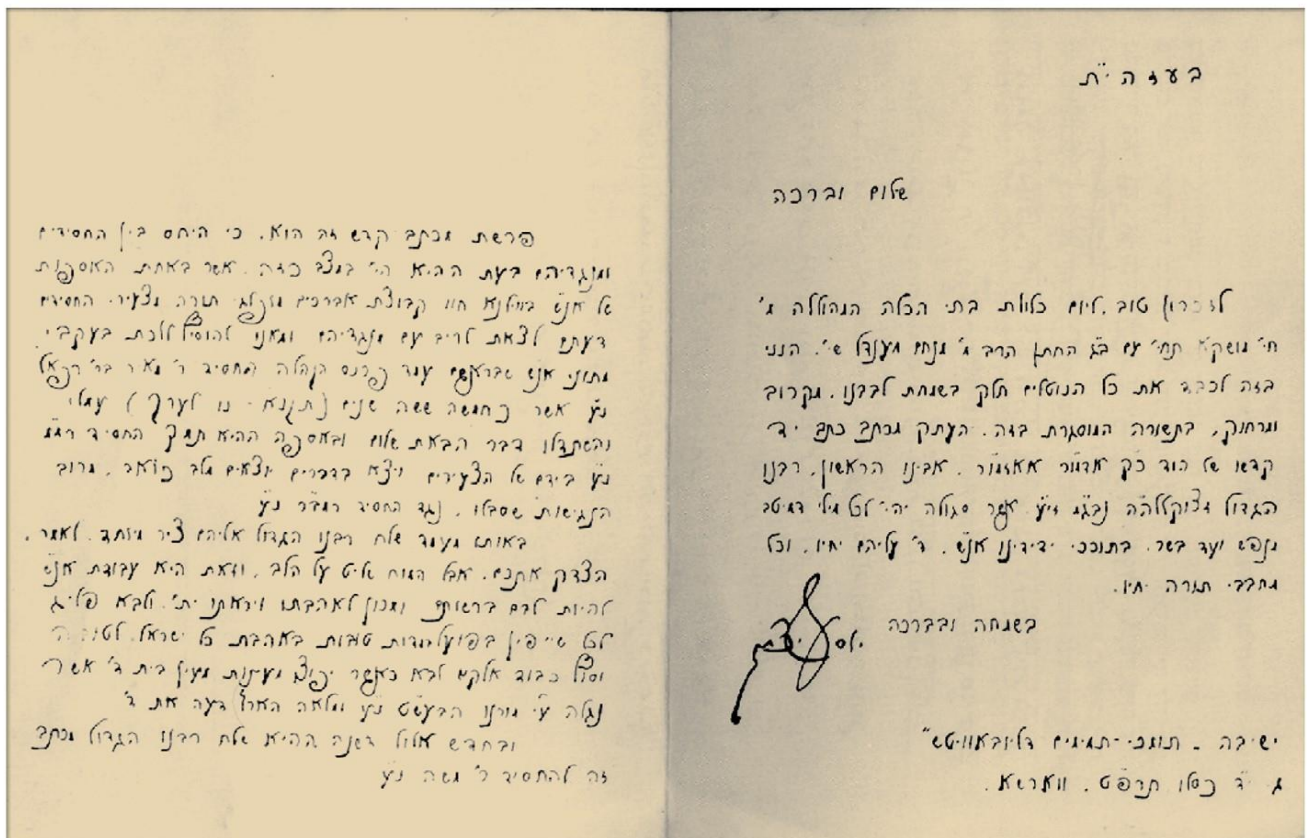 בעזה"ית
שלום וברכה
לזכרון טוב. ליום כלולת בתי הכלה המהוללה מ'
חי' מושקא תחי' עם ב"ג החתן הרב מ' מנחם מענדל שי'. הנני
בזה לכבד את כל הנוטלים חלק בשמחת לבבנו. מקרוב
ומרחוק, בתשורה המוסגרת בזה. העתק מכתב כתב יד"
קדשו של הוד כ"ק אדמו"ר אאזמו"ר. אבינו הראשון, רבנו
הגדול מצוקללה"ה נבג"מ זי"ע. אשר סגולה יהי' לכל מילי דמיטב
מנפש ועד בשר. בתוככי ידידינו אנ"ש. ד' עליהם יחיו. וכל
מחבבי תורה יחיו.
בשמחה ובברכה
ישיבה - תומכי-תמימים דליובאוויטש"
ג' י"ד כסלו תרפ"ט. ווארשא.
פרשת מכתב קדש זה הוא. כי היחס בין החסידים
ומנגדיהם בעת ההיא הי' במצב כזה. אשר באחת האסיפות
של אנ"ש בווילנא חוו קבוצת אברכים מופלגי תורה מצעירי החסידים
דעתם לצאת לריב עם מנגדיהם ומאנו להוסיף ללכת בעקבי
מתוני אנ"ש שבראשם עמד פרנס הקהלה החסיד ר' מאר בר' רפאל
נ"ע אשר כחמשה ששה שנים (תקנ"א - נו לערך) עמלו
והשתדלו דבר הבאת שלום ובאספה ההיא תמך החסיד רמ"מ
נ"ע בידם של הצעירים ויצא בדברים יוצאים מלב כואב, מרוב
הנגישות שסבלו. נגד החסיד רמב"ר נ"ע
באותו מעמד שלח רבנו הגדול אליהם ציר מיוחד. לאמר.
הצדק אתכם. אבל המוח שליט על הלב. וזאת היא עבודת אנ"ש
להיות לבם ברשותם ומכון לאהבתו ויראתו ית'. ולבא פליג
לכל שייפין בפועל מדות טובות באהבת כל ישראל. לטוב ה'
וסוף כבוד אלקים לבא כאשר יפוצו מעינות מעין בית ד' אשר
נגלה ע"י מורנו הבעש"ט נ"ע ומלאה הארץ דעה את ד'
ובחדש אלול דשנה ההיא שלח רבנו הגדול מכתב
זה להחסיד ר' משה נ"ע